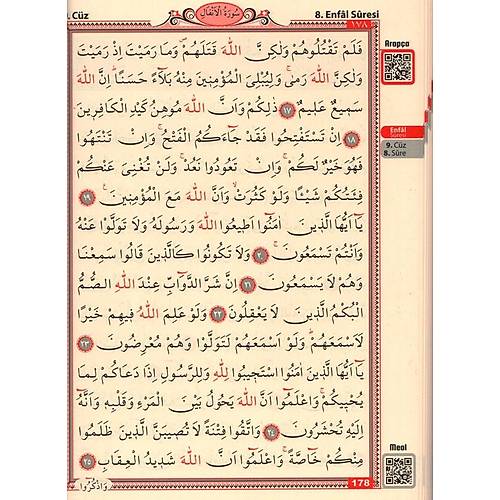 . Cüz
سُورَةُ الْاَنْفَالِ
8. Enfâl Sûresi
١٧٨
فَلَمْ تَقْتُلُوهُمْ وَلٰكِنَّ اللّٰهَ قَتَلَهُمْۖ وَمَا رَمَيْتَ اِذْ رَمَيْتَ
وَلٰكِنَّ اللّٰهَ رَمٰىۚ وَلِيُبْلِيَ الْمُؤْمِنِينَ مِنْهُ بَلَٓاءً حَسَنًاۜ اِنَّ اللّٰهَ
سَمِيعٌ عَلِيمٌ ﴿١٧﴾ ذٰلِكُمْ وَاَنَّ اللّٰهَ مُوهِنُ كَيْدِ الْكَافِرِينَ
﴿١٨﴾ اِنْ تَسْتَفْتِحُوا فَقَدْ جَٓاءَكُمُ الْفَتْحُۚ وَاِنْ تَنْتَهُوا
فَهُوَ خَيْرٌ لَكُمْۚ وَاِنْ تَعُودُوا نَعُدْۚ وَلَنْ تُغْنِيَ عَنْكُمْ
فِئَتُكُمْ شَيْـًٔا وَلَوْ كَثُرَتْۙ وَاَنَّ اللّٰهَ مَعَ الْمُؤْمِنِينَ۟ ﴿١٩﴾
يَٓا اَيُّهَا الَّذِينَ اٰمَنُٓوا اَطِيعُوا اللّٰهَ وَرَسُولَهُ وَلَا تَوَلَّوْا عَنْهُ
وَاَنْتُمْ تَسْمَعُونَۚ ﴿٢٠﴾ وَلَا تَكُونُوا كَالَّذِينَ قَالُوا سَمِعْنَا
وَهُمْ لَا يَسْمَعُونَ ﴿٢١﴾ اِنَّ شَرَّ الدَّوَٓابِّ عِنْدَ اللّٰهِ الصُّمُّ
الْبُكْمُ الَّذِينَ لَا يَعْقِلُونَ ﴿٢٢﴾ وَلَوْ عَلِمَ اللّٰهُ فِيهِمْ خَيْرًا
لَاَسْمَعَهُمْۜ وَلَوْ اَسْمَعَهُمْ لَتَوَلَّوْا وَهُمْ مُعْرِضُونَ ﴿٢٣﴾
يَٓا اَيُّهَا الَّذِينَ اٰمَنُوا اسْتَجِيبُوا لِلّٰهِ وَلِلرَّسُولِ اِذَا دَعَاكُمْ لِمَا
يُحْيِيكُمْۚ وَاعْلَمُٓوا اَنَّ اللّٰهَ يَحُولُ بَيْنَ الْمَرْءِ وَقَلْبِهِ وَاَنَّهُٓ
اِلَيْهِ تُحْشَرُونَ ﴿٢٤﴾ وَاتَّقُوا فِتْنَةً لَا تُصِيبَنَّ الَّذِينَ ظَلَمُوا
مِنْكُمْ خَٓاصَّةًۚ وَاعْلَمُٓوا اَنَّ اللّٰهَ شَدِيدُ الْعِقَابِ ﴿٢٥﴾
وَاذْكُرُٓوا
178
Arapça
Enfâl
Sûresi
9. Cüz
8. Sûre
Meal